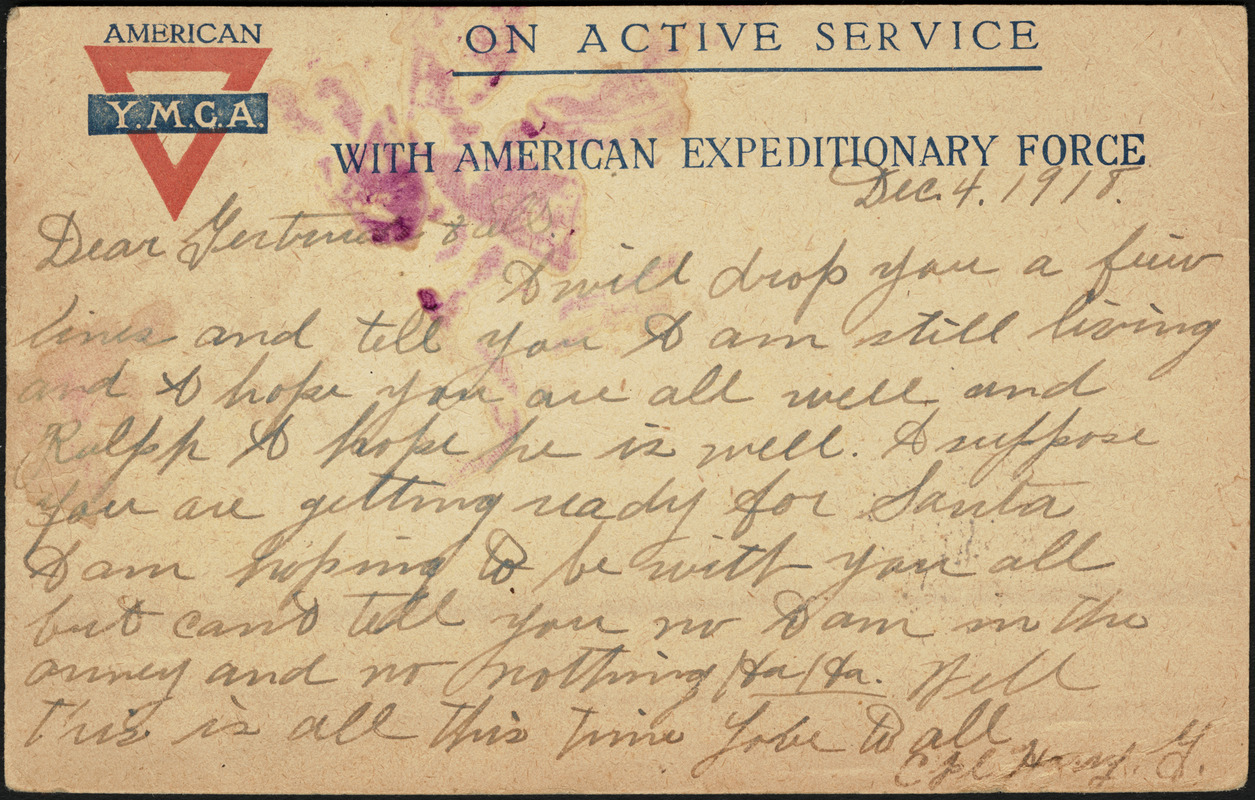 AMERICAN
Y.M.C.A.
ON ACTIVE SERVICE
WITH AMERICAN EXPEDITIONARY FORCE
Dec. 4. 1918.
Dear Gertrude & all.
I will drop you a fiew
lines and tell you I am still living
and I hope you are all well and
Ralph I hope he is well. I suppose
you are getting ready for Santa
I am hoping to be with you all
but can't tell you no I am in the
army and no nothing Ha Ha. Well
this is all this time Love to all
Cpl Harry. G.